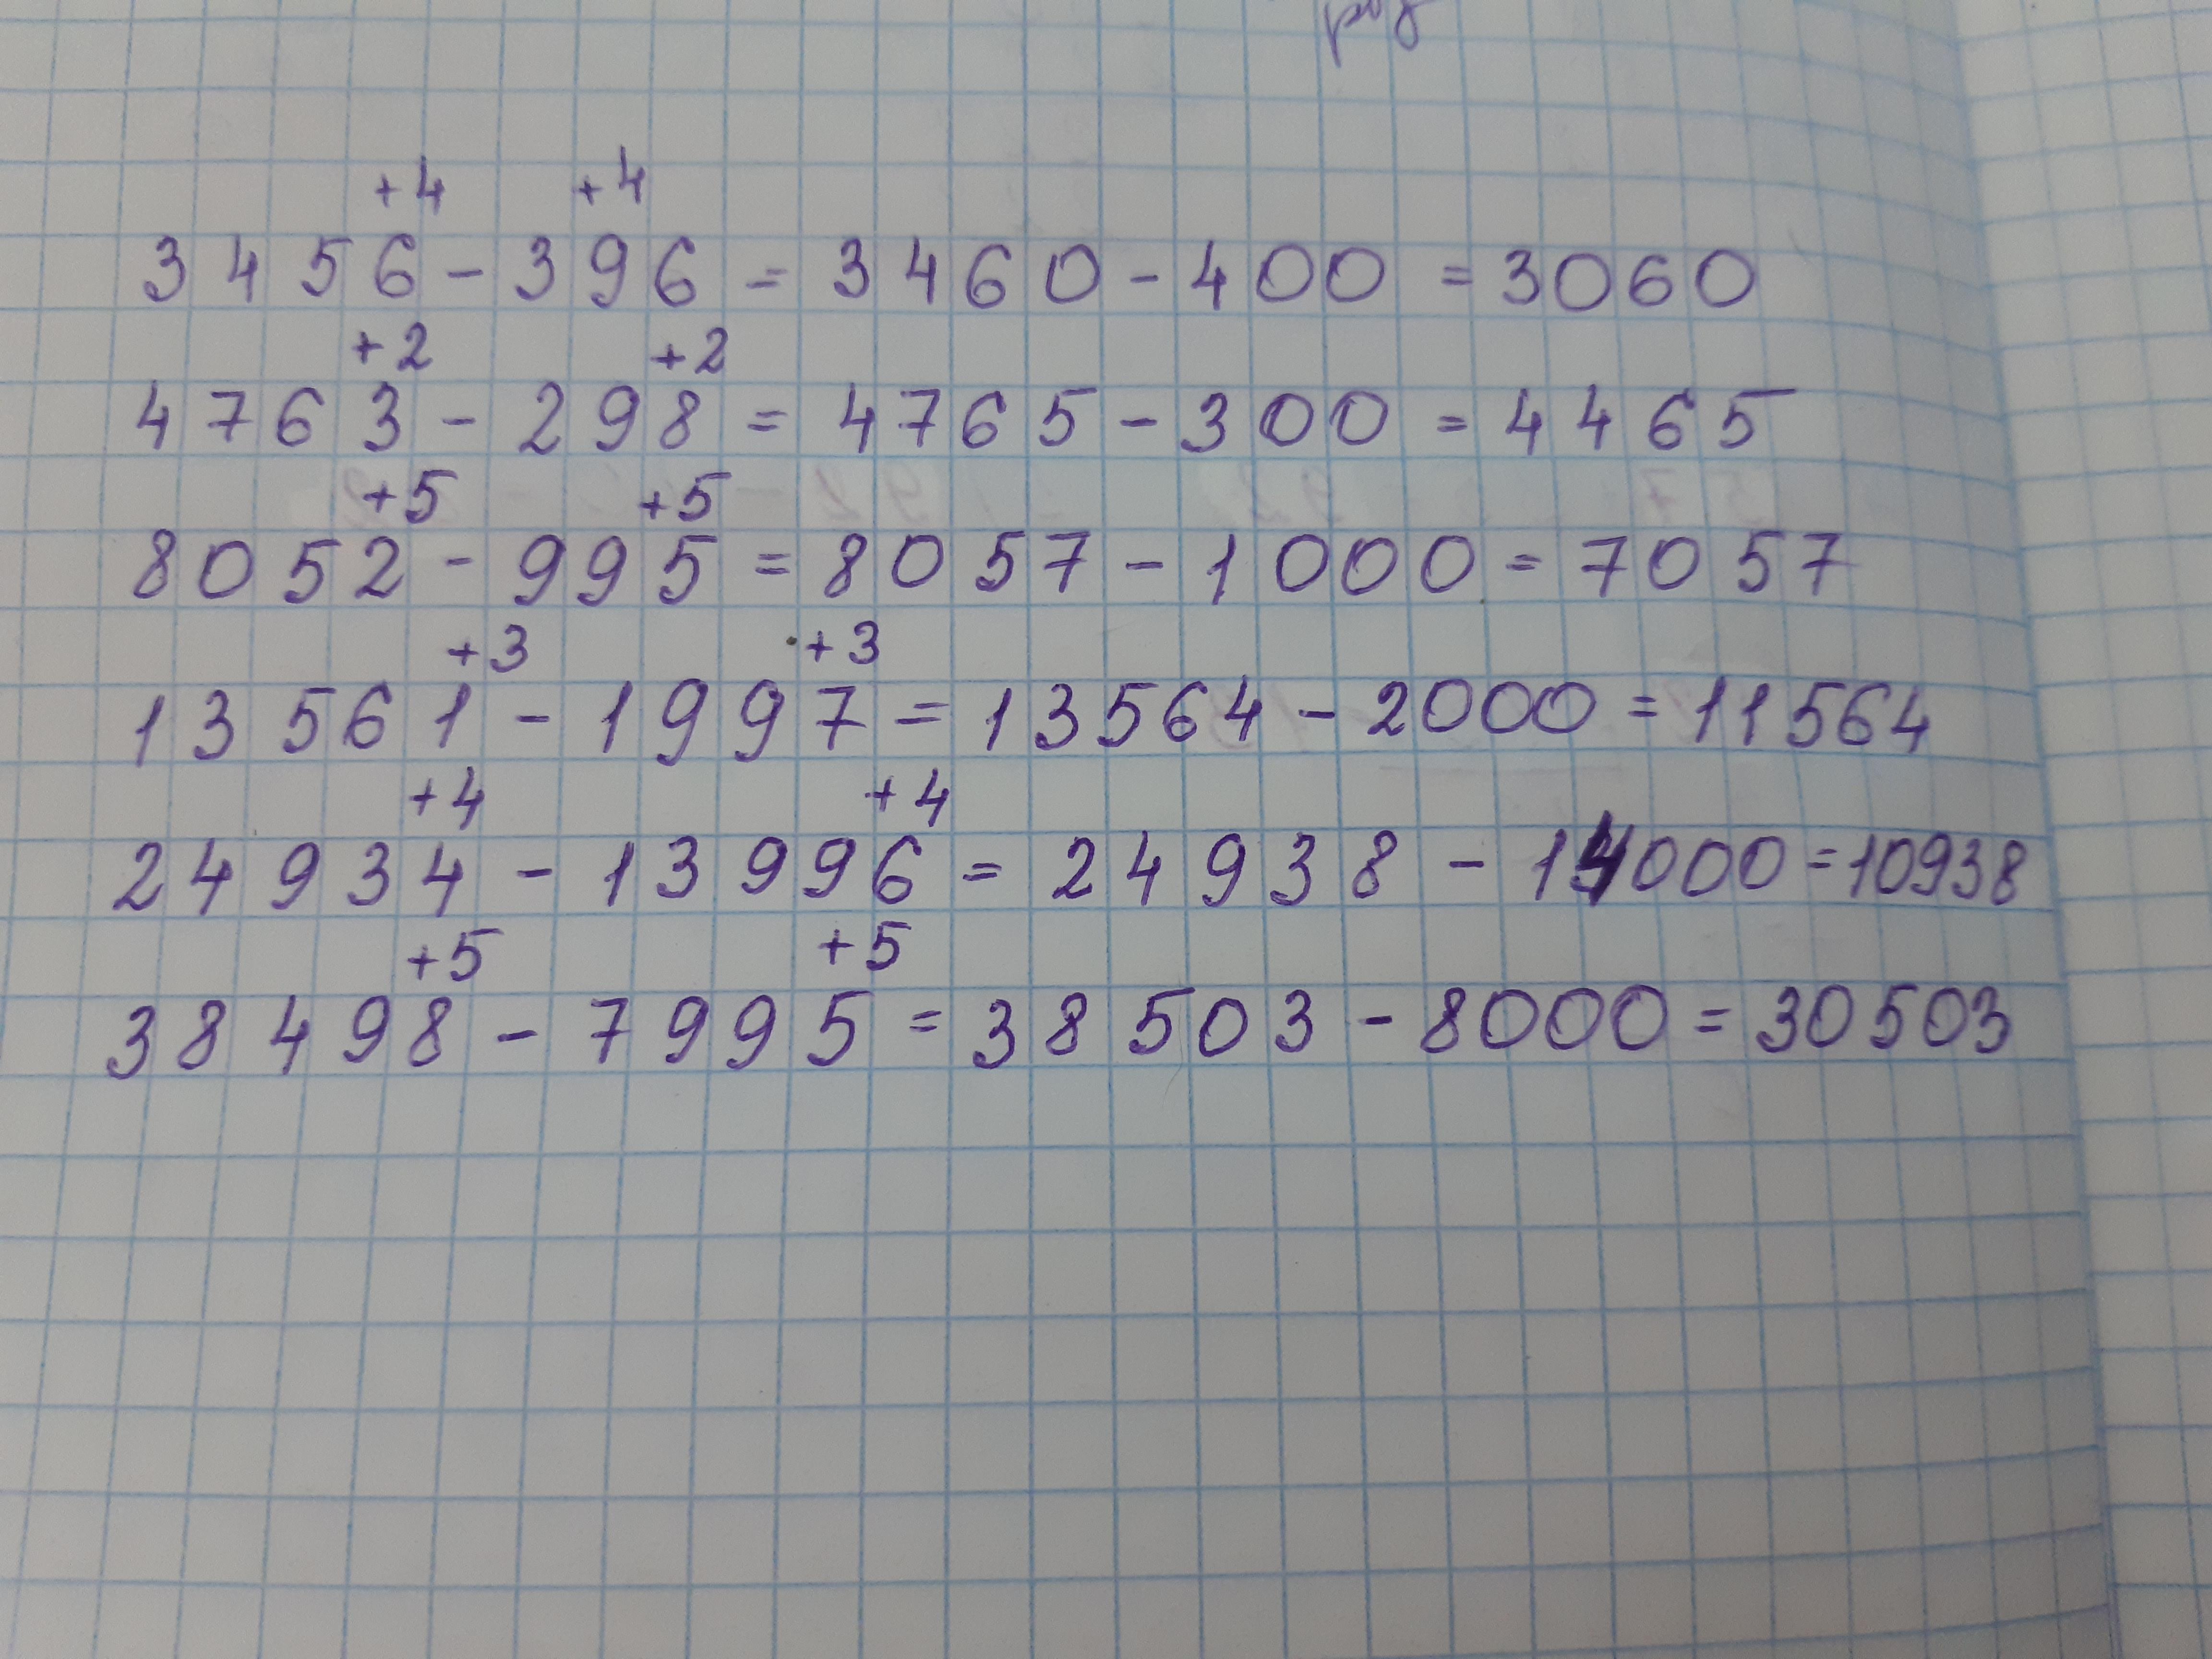 +4 +4
3456 - 396 = 3460 - 400 = 3060
+2 +2
4763 - 298 = 4765 - 300 = 4465
+5 +5
8052 - 995 = 8057 - 1000 = 7057
+3 +3
13561 - 1997 = 13564 - 2000 = 11564
+4 +4
24934 - 13996 = 24938 - 14000 = 10938
+5 +5
38498 - 7995 = 38503 - 8000 = 30503